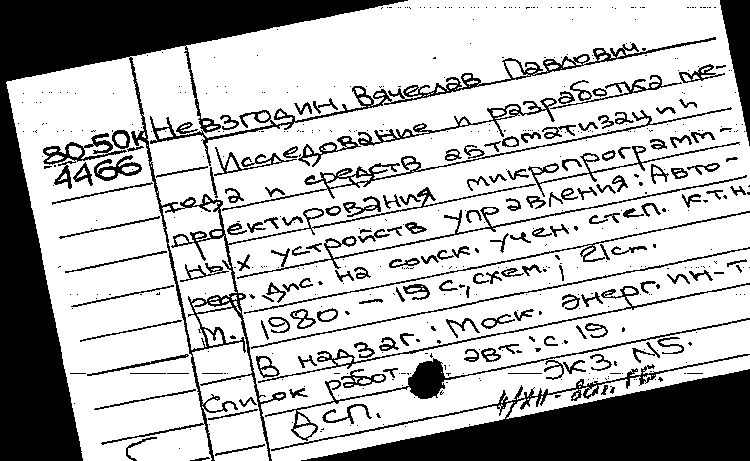 80-50к
4466
Невзгодин, Вячеслав Павлович.
Исследование и разработка ме-
тода и средств автоматизации
проектирования микропрограмм-
ных устройств управления: Авто-
реф. дис. на соиск. учен. степ. к.т.н.
М., 1980. - 19 с., схем.; 21см.
В надзаг.: Моск. энерг. ин-т
Список работ авт.: с. 19.
ДСП.
Экз. №5.